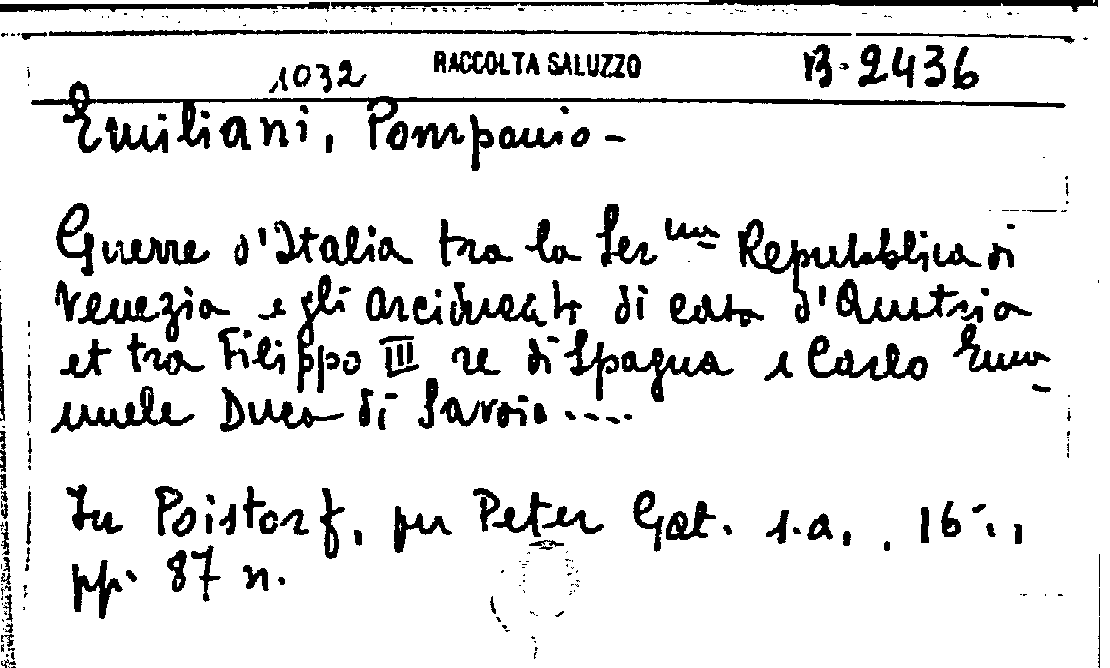 1032 RACCOLTA SALUZZO B-2436
Emiliani, Pomponio -
Guerre d'Italia tra la Ser ma Repubblica di
Venezia e gli arciducati di casa d'Austria
et tra Filippo III re di Spagna e Carlo Ema
nuele Duca di Savoia ....
In Poistorf, per Peter Gat. s.a., 16°.,
pp. 87 n.